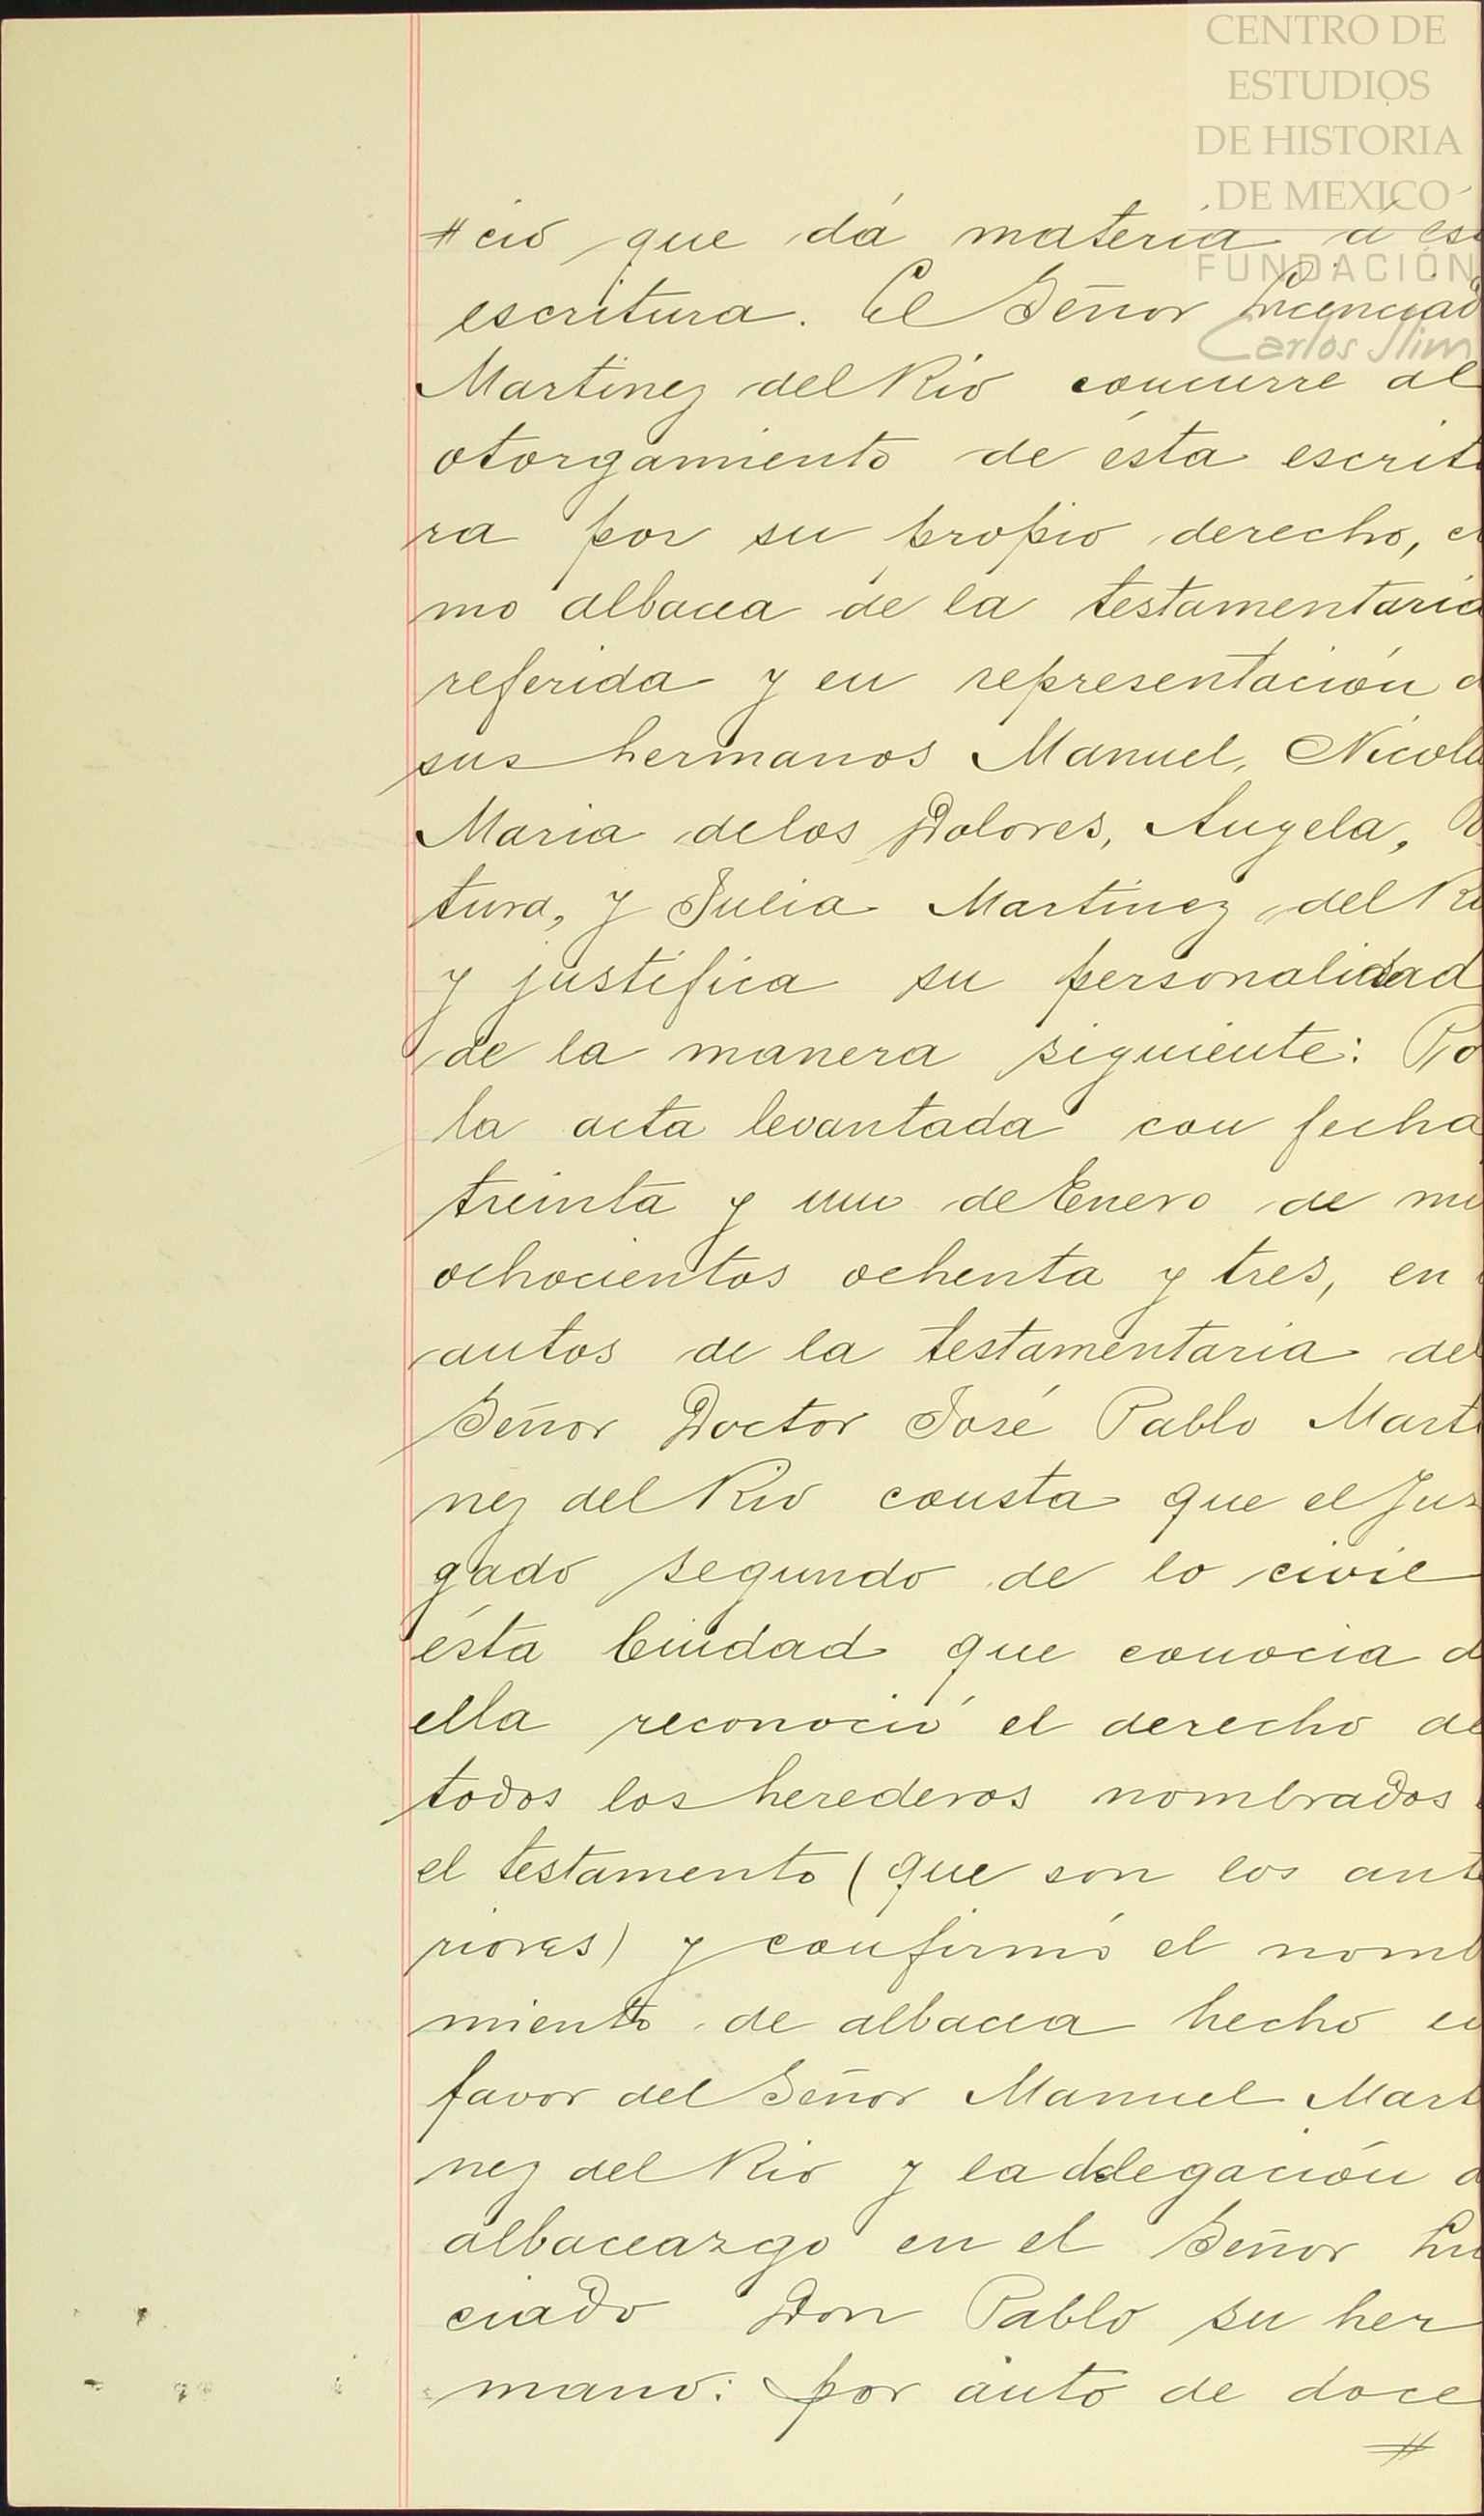 CENTRO DE
ESTUDIOS
DE HISTORIA
DE MEXICO
FUNDACIÓN
Carlos Slim
#cio que dá materia á es
escritura. El Señor Licenciad
Martinez del Rio concurre al
otorgamiento de ésta escrit
ra por su propio derecho, c
mo albacea de la testamentaria
referida y en representación d
sus hermanos Manuel, Nicola
Maria de los Dolores, Angela,
tura, y Julia Martinez del Ri
y justifica su personalidad
de la manera siguiente: Po
la acta levantada con fecha
treinta y uno de Enero de mi
ochocientos ochenta y tres, en
autos de la testamentaria del
Señor Doctor José Pablo Marti
nez del Rio consta que el Juz
gado segundo de lo civil
ésta Ciudad que conocia d
ella reconoció el derecho de
todos los herederos nombrados
el testamento (que son los ante
riores) y confirmó el nomb
miento de albacea hecho en
favor del Señor Manuel Mart
nez del Rio y la delegación d
albaceazgo en el Señor Lic
ciado Don Pablo su her
mano: por auto de doce
#